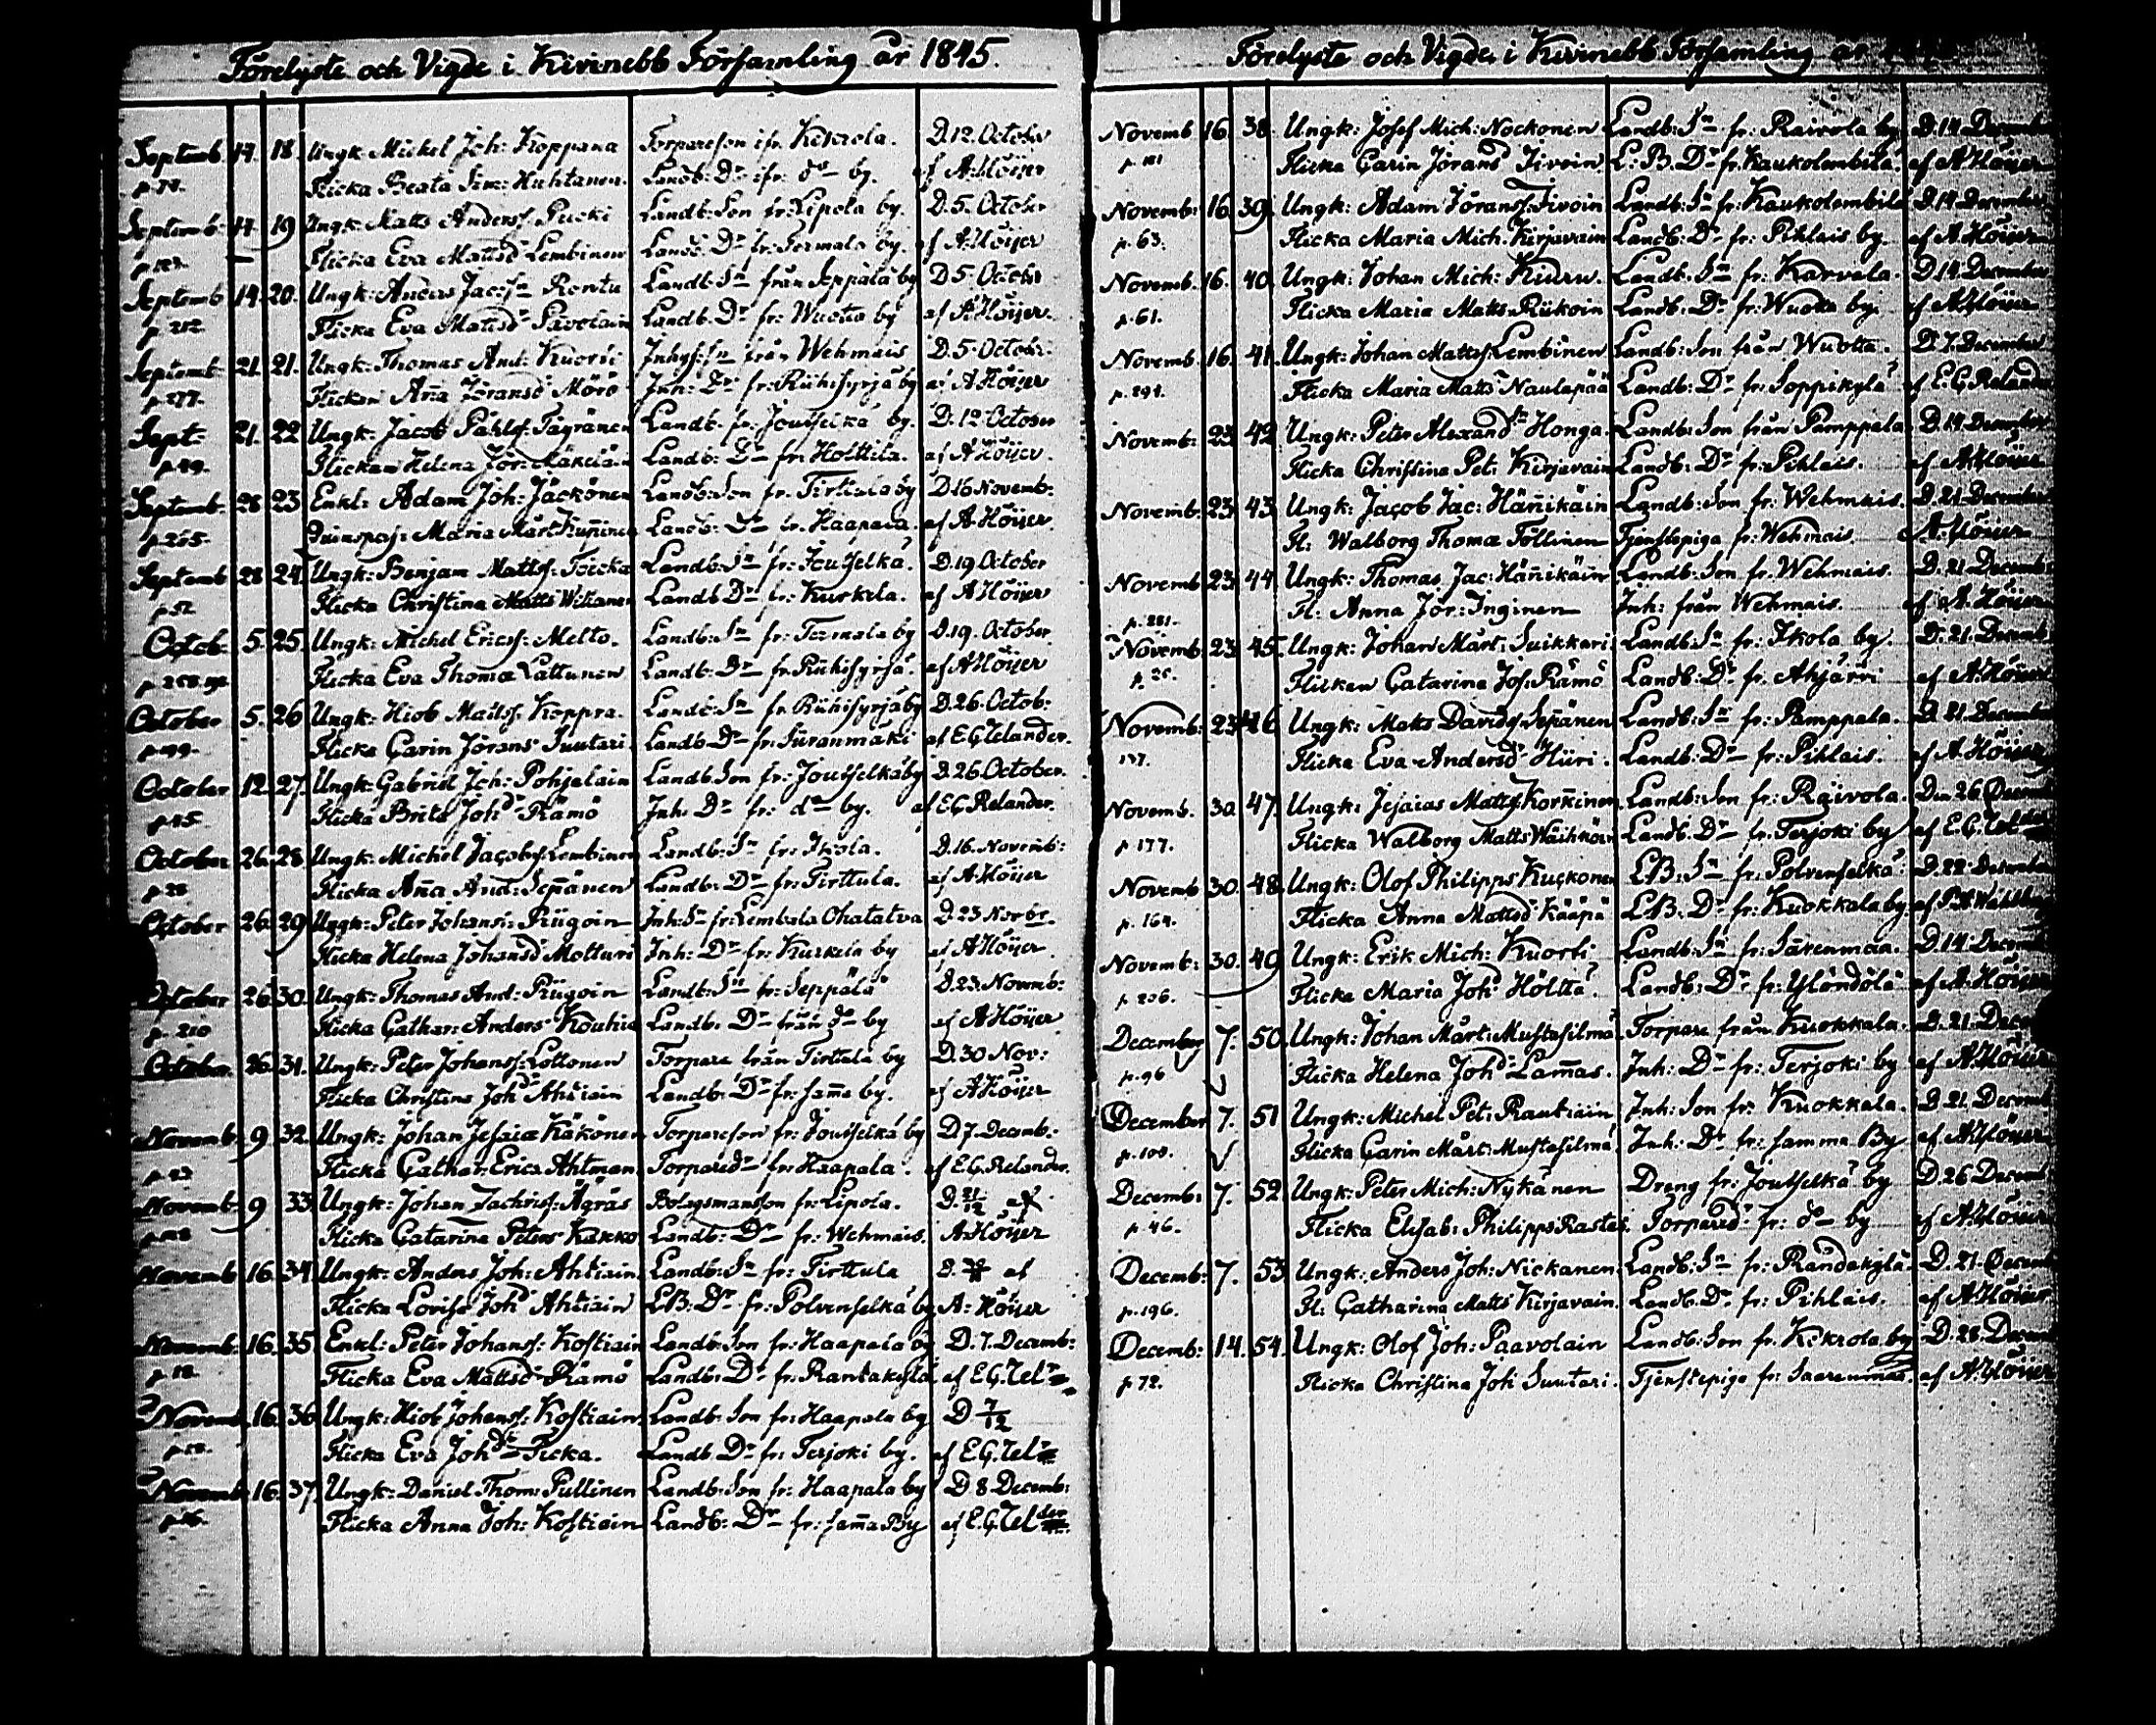 Förelyste och Vigde i Kivinebb Församling år 1845.
Septemb. 14. 18. Ungk: Michel Joh: Koppana Torpareson ifr. Kekrola. D. 12. October
p. 78. Flicka Beata Sim: Huhtanen. Landb: Dr ifr: do by. af A. Höijer
Septemb: 14. 19 Ungk: Matts Anderss. Pucki Landb: Son fr: Lipola by. D. 5. October
Flicka Eva Mattsdr Lembinen Landb: Dr fr: Termala by. af A. Höijer
Septemb 14. 20. Ungk: Anders Jac: Sn Rontu Landb: Sn från Seppälä by D. 5. Octobr
p. 212. Flicka Eva Mattsdr Pavolain Landb. Dr fr: Wuotta by af A. Höijer.
Septemb 21. 21. Ungk: Thomas And: Kuorti Inhys: Sn från Wehmais D. 5. Octobr.
p. 277. Flickan Aña Jöransd Mörö Inh: Dr fr: Riihisyrjä by af A. Höijer
Sept: 21. 22 Ungk: Jacob Påhlss. Tägränen Landb. fr: Joutselkä by. D. 12. October
p. 49. Flickan Helena Jör: Mäkelä Landb: Dr fr: Holttila. af A. Höijer.
Septemb: 28 23 Enkl: Adam Joh: Jäckönen Landb: Son fr. Tirttula by D. 16 Novemb:
p. 265. Maria Mårt: Kuñinen Landb: Dr fr. Haapala. af A. Höijer.
Septemb 28 24. Ungk: Benjam Mattss: Toicka Landb: Sn fr: Joutselkä. D. 19 October
p. 52 Flicka Christina Matts Landb Dr fr: Kurkela. af A Höijer
Octob. 5. 25. Ungk: Michel Ericss: Melto. Landb: Sn fr: Termala by D. 19. October.
Flicka Eva Thomæ Lattunen Landb: Dr fr. Riihisyrjä. af A Höijer
October 5. 26 Ungk: Hiob Mattss: Koppra. Landb: Sn fr. Riihisyrjä by D. 26. Octob:
p. 99. Flicka Carin Jörans Suutari. Landb Dr fr: Suranmäki af E.G. Telander.
October 12. 27. Ungk: Gabriel Joh: Pohjalain Landb. Son fr: Joutselkä by D. 26. October.
p. 45. Flicka Brita Johdr Rämö Inh: Dr fr: do by. af E.G. Relander.
October 26. 28. Ungk: Michel Jacobss. Lembinen Landb: Sn fr: Ikola. D. 16. Novemb:
p. 28 Flicka Aña And: Sepänen Landb: Dr fr: Tirttula. af A. Höijer
October 26. 29 Ungk: Peter Johanss: Riigoin Inh: Sn fr: Lembala Ohatatva D. 23 Novbr.
Flicka Helena Johansd Motturi Inh: Dr fr: Kurkela by af A Höijer
October 26. 30. Ungk: Thomas And: Riigoin Landb: Sn fr: Seppälä D. 23. Novemb:
p. 210 Flicka Cathar: Anders Kouhia Landb: Dr från do by af A Höijer
October 26. 31. Ungk: Peter Johanss: Lottonen Torpare från Tirttula by D. 30 Nov:
Flicka Christina Johdr Ahtiain Landb: Dr fr: sama by. af A Höijer
Novemb. 9. 32. Ungk: Johan Jesaiæ Käkönen Torpareson fr: Joutselkä by D. 7. Decemb:
p. 43 Flicka Cathar: Erics Ahtman. Torparedr fr: Haapala. af E.G. Relander.
Novemb 9 33. Ungk: Johan Zachriss: Ägräs Bolagsmansson fr. Lipola. D. 21/12 af
Flicka Catarina Peters Kakko Landb: Dr fr: Wehmais. A. Höijer
Novemb 16. 34. Ungk: Anders Joh: Ahtiain. Landb: Sn fr: Tirttula D. af
Flicka Lovisa Joh Ahtiain LB: Dr fr: Polvenselkä by A. Höijer
Novemb. 16. 35. Enkl: Peter Johanss: Kostiain Landb: Son fr: Haapala by D. 7. Decemb:
p. 18. Flicka Eva Mattsd Rämö Landb: Dr fr: Rantakylä. af E.G. Telr
Novemb. 16. 36. Ungk: Hiob Johanss: Kostiain. Landb: Son fr: Haapala by D 7/12
p. 18. Flicka Eva Johdr Ticka. Landb Dr fr: Terjoki by. af E.G. Telr
Novemb. 16. 37. Ungk: Daniel Thom: Pullinen Landb: Son fr: Haapala by D 8 Decemb:
p. 16. Flicka Anna Joh: Kostiain Landb: Dr fr: sama By af E.G. Telder
Förelyste och Vigde i Kivinebb Församling år
Novemb 16. 38. Ungk: Josef Mich: Nockonen Landb: Sn fr. Raivola by D. 14 Decemb
p. 181 Flicka Carin Jörans Jivoin. L: B. Dr fr. Kaukolembilä af A Höijer
Novemb: 16. 39. Ungk: Adam Jöranss. Jivoin Landb: Sn fr: Kaukolembilä D. 14 December
p. 63. Flicka Maria Mich. Kirjavain Landb. Dr fr: Pihlais by. af A. Höijer
Novemb. 16. 40. Ungk: Johan Mich: Kiuru. Landb. Sn fr: Karvala. D. 14. December
p. 61. Flicka Maria Matts Riikoin Landb: Dr fr: Wuotta by. af A. Höijer
Novemb. 16. 41. Ungk: Johan Mattss. Lembinen Landb: Son från Wuotta. D. 7. December
p. 294. Flicka Maria Matts Naulapää Landb: Dr fr: Soppikylä af E.G. Relander
Novemb: 23. 42. Ungk: Peter Alexand. Sn Honga. Landb: Son från Pamppala. D. 14 December
Flicka Christina Pet: Kirjavain Landb: Dr fr: Pihlais. af A. Höijer
Novemb: 23. 43. Ungk: Jacob Jac: Häñikäin Landb: Son fr: Wehmais. D. 21 December
Fl: Walborg Thomæ Töllinen Tjenstepiga fr: Wehmais. A. Höijer
Novemb 23. 44. Ungk: Thomas Jac: Häñikäin Landb: Son fr. Wehmais. D. 21 Decemb:
p. 281. Fl: Anna Jör: Inginen Inh: från Wehmais. af A. Höijer
Novemb. 23. 45. Ungk: Johan Mårt: Suikkari. Landb: Sn fr: Ikola by. D. 21. Decemb
p. 26. Flickan Catarina Jos. Rämö Landb: Dr fr. Ahjärvi af A. Höijer
Novemb: 23. 46. Ungk: Mats Davidss. Sepänen Landb: Sn fr: Pamppala. D. 21. December
137. Flicka Eva Andersdr Hiiri. Landb: Dr fr: Pihlais. af A. Höijer
Novemb. 30. 47. Ungk: Jesaias Mattss. Korkinen. Landb: Son fr: Raivola. Den 26. Decemb
p. 177. Flicka Walborg Matts Landb. Dr fr: Terjoki by af E.G. Telder
Novemb 30. 48. Ungk: Olof Philipps Kuckonen LB: Sn fr: Polvenselkä. D. 22. December
p. 164. Flicka Anna Mattsdr Kääpä LB: Dr fr: Kuokkala by. af
Novemb: 30. 49 Ungk: Erik Mich: Kuorti Landb: Sn fr: Särenmaa. D. 14. Decemb
p. 206. Flicka Maria Johd Hölttä. Landb: Dr fr: Ylöndölä af A. Höijer
December 7. 50. Ungk: Johan Mårt: Mustasilmä. Torpare från Kuokkala. D. 21. Dece
p. 96 Flicka Helena Johdr Lamas. Inh: Dr fr: Terjoki by af A. Höijer
December 7. 51 Ungk: Michel Pet: Rautiain Inh: Son fr: Kuokkala. D. 21. Decemb
p. 108. Flicka Carin Mårt: Mustasilmä Inh: Dr fr: samma By af A. Höijer
Decemb: 7. 52. Ungk: Peter Mich: Nykänen Dreng fr: Joutselkä by D. 26 Decemb
p. 46. Flicka Elisab: Philipps Rastas. Torpared: fr: do by af A. Höijer
Decemb: 7. 53. Ungk: Anders Joh: Nickanen Landb: Sn fr: Randakylä. D. 27. Decemb
p. 196. Fl: Catharina Matts Kirjavain. Landb. Dr fr: Pihlais. af A. Höijer
Decemb: 14. 54. Ungk: Olof Joh: Paavolain Landb: Son fr. Kekrola by D. 28. Decem
p. 72. Flicka Christina Joh Suutari. Tjenstepiga fr: Saarenmaa. af A. Höijer